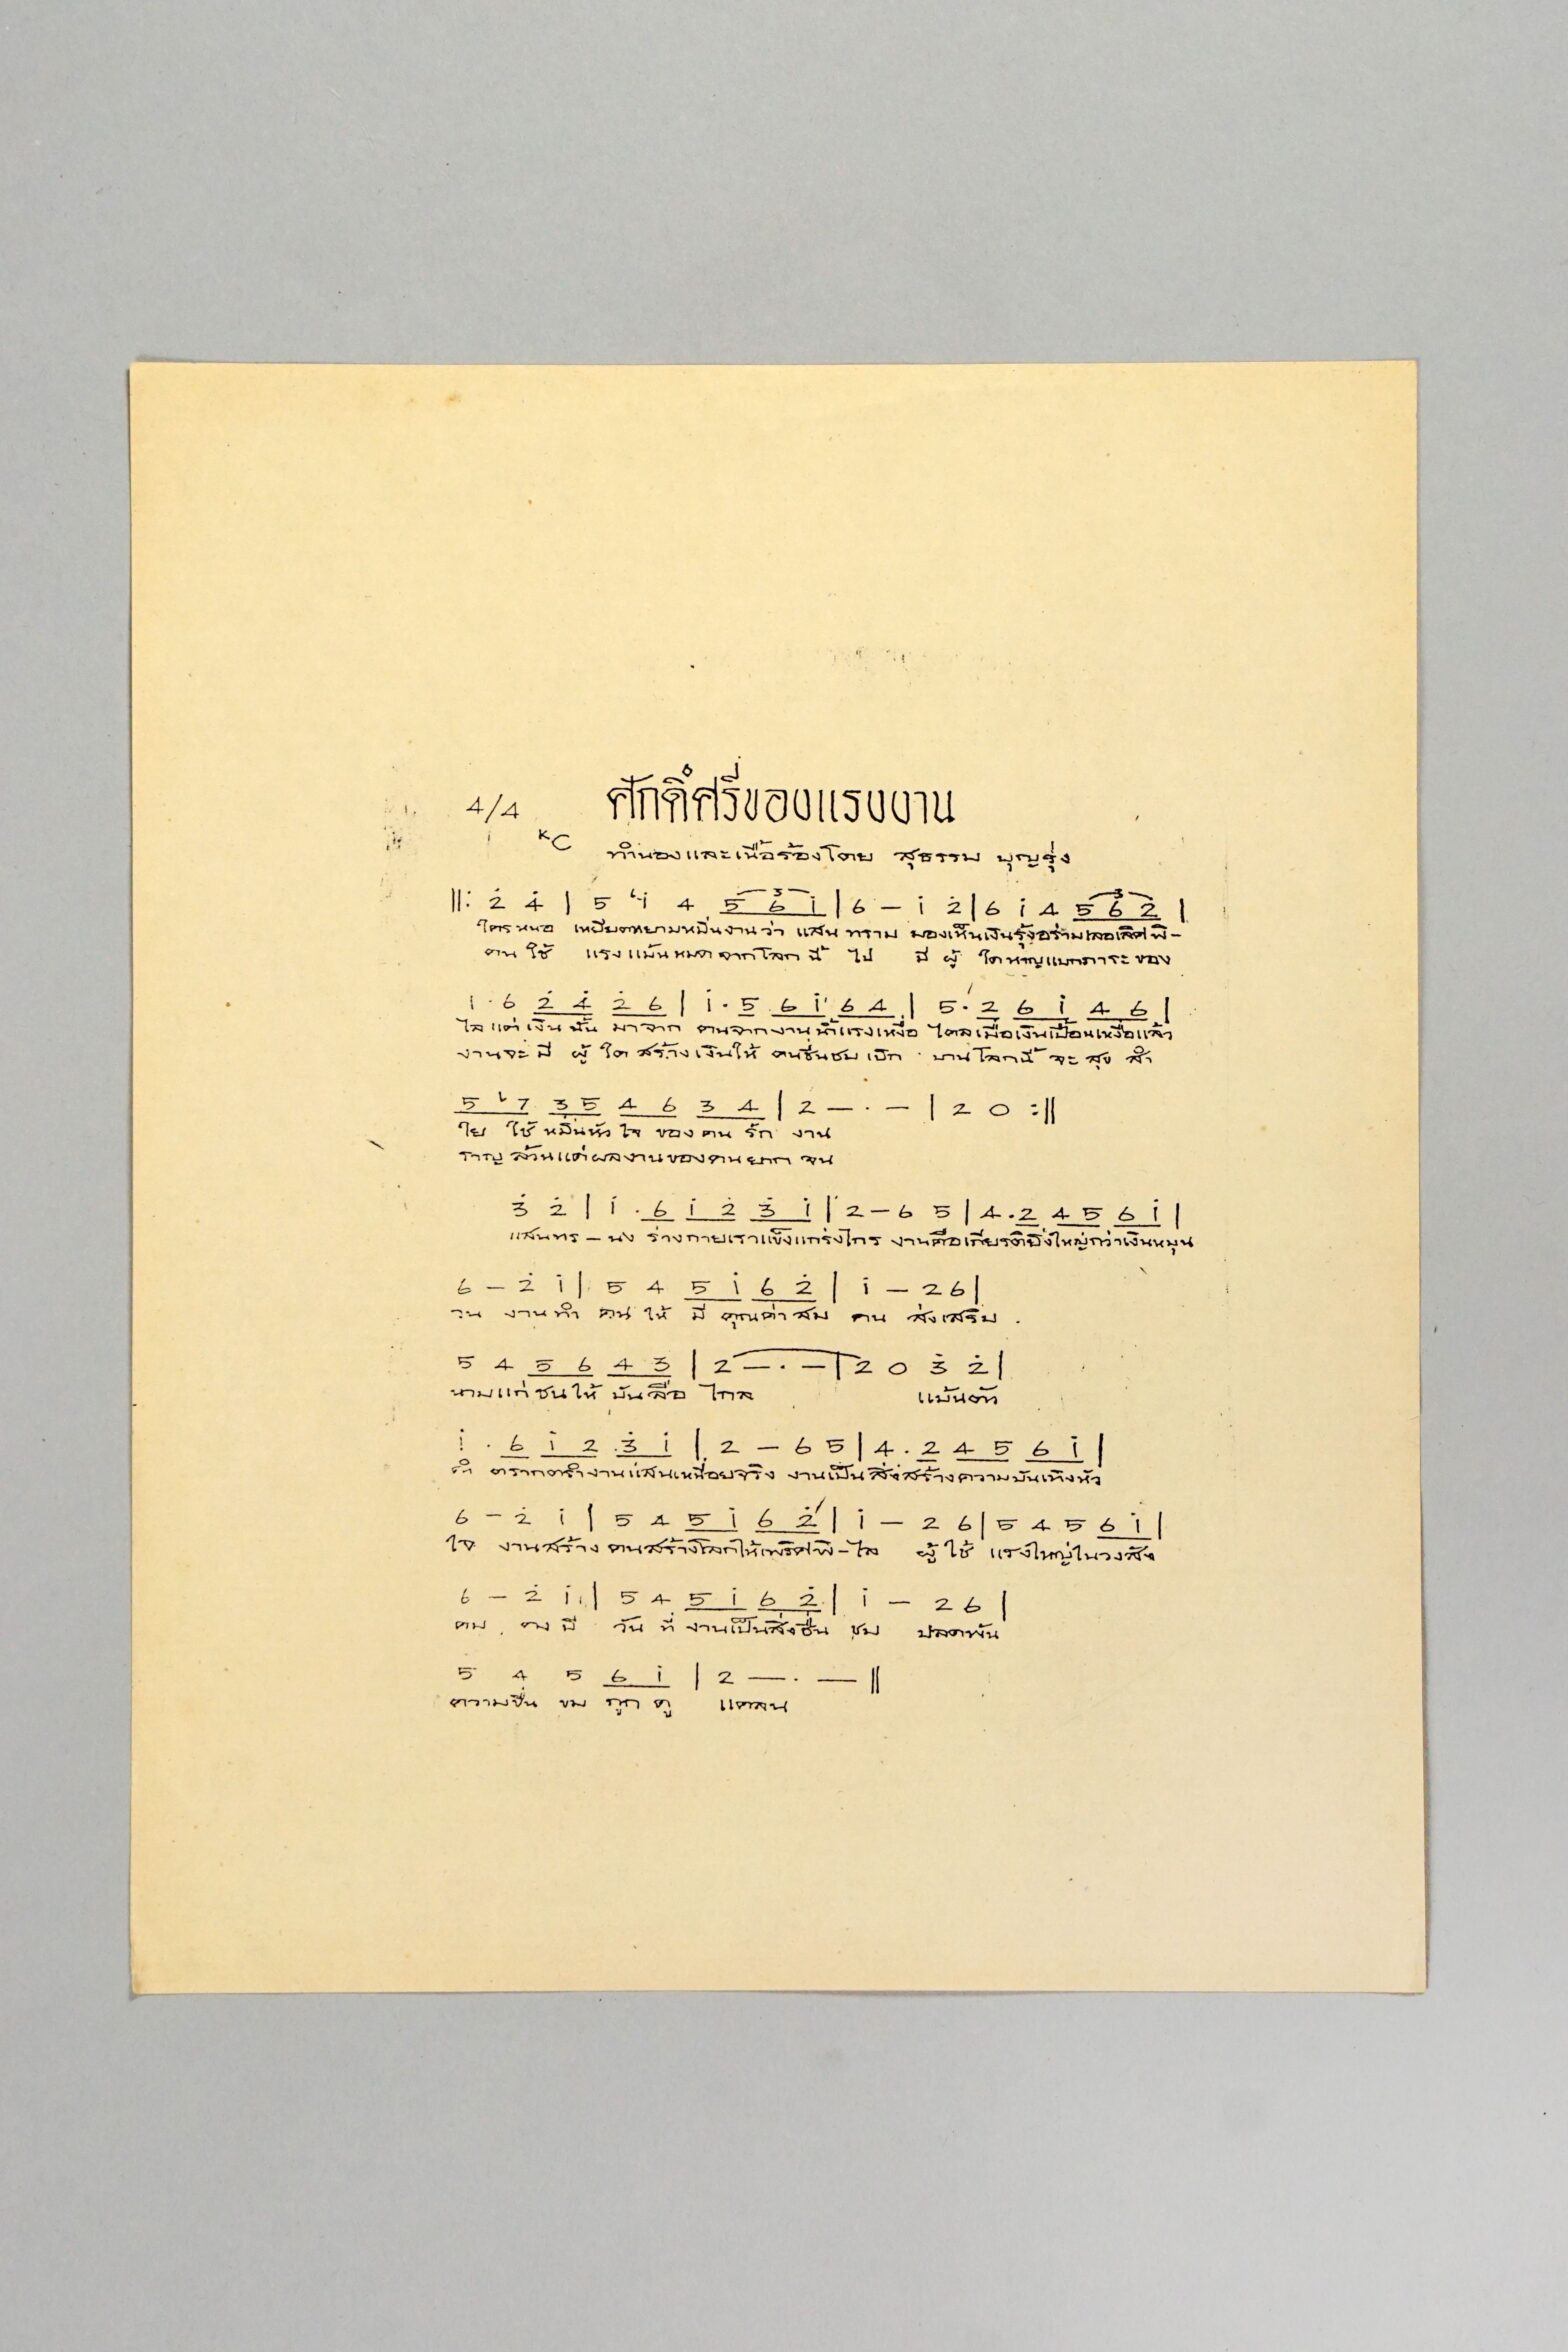 4/4 ศักดิ์ศรีของแรงงาน
KC ทำนองและเนื้อร้องโดย สุธรรม บุญรุ่ง
||: 2̇ 4̇ | 5 ᑲi 4 5 6 i | 6 – i 2̇ | 6 i 4 5 6 2̇ |
ใครหนอ เหยียดหยามหมิ่นงานว่า แสน ทราม มองเห็นเงินรุ้งอร่ามเลอเลิศพิ–
คน ใช้ แรงแม้นหมดจากโลกนี้ ไป มี ผู้ ใดหาญแบกภาระ ของ
i . 6 2̇ 4̇ 2̇ 6 | i . 5 6 i 6 4 | 5 . 2 6 i 4 6 |
ไล แต่ เงิน นั้น มาจาก คนจากงานน้ำแรงเหงื่อ ไคลเมื่อเงินเปื้อนเหงื่อแล้ว
งานจะ มี ผู้ ใด สร้างเงินให้ คนชื่นชม เบิก บานโลกนี้ จะ สุข สำ
5 ᑲ7 3 5 4 6 3 4 | 2 — . — | 2 0 :||
ใย ใช้ หมิ่นหัว ใจ ของ คน รัก งาน
ราญ ล้วนแต่ผลงานของคนยาก จน
3̇ 2̇ | i . 6 i 2̇ 3̇ i | 2 – 6 5 | 4 . 2 4 5 6 i |
แสนทร – นง ร่างกายเราแข็งแกร่งไกร งานคือเกียรติยิ่งใหญ่กว่าเงินหมุน
6 – 2̇ i | 5 4 5 i 6 2̇ | i – 2 6 |
วน งานทำ คน ให้ มี คุณค่าสม คน ส่งเสริม
5 4 5 6 4 3 | 2 — . — | 2 0 3̇ 2̇ |
นามแก่ชนให้ บันลือ ไกล แม้นตัว
i . 6 i 2 3̇ i | 2 – 6 5 | 4 . 2 4 5 6 i |
ดำ ตรากตรำงานแสนเหนื่อยจริง งานเป็นสิ่งสร้างความบันเทิงหัว
6 – 2̇ i | 5 4 5 i 6 2̇ | i – 2 6 | 5 4 5 6 i |
ใจ งานสร้าง คนสร้างโลกให้เพริศพิ–ไล ผู้ ใช้ แรงใหญ่ในวงสัง
6 – 2̇ i | 5 4 5 i 6 2̇ | i – 2 6 |
คม คง มี วัน ที่ งานเป็นสิ่งชื่น ชม ปลดพ้น
5 4 5 6 i | 2 — . — ||
ความขื่น ขม ถูก ดู แคลน